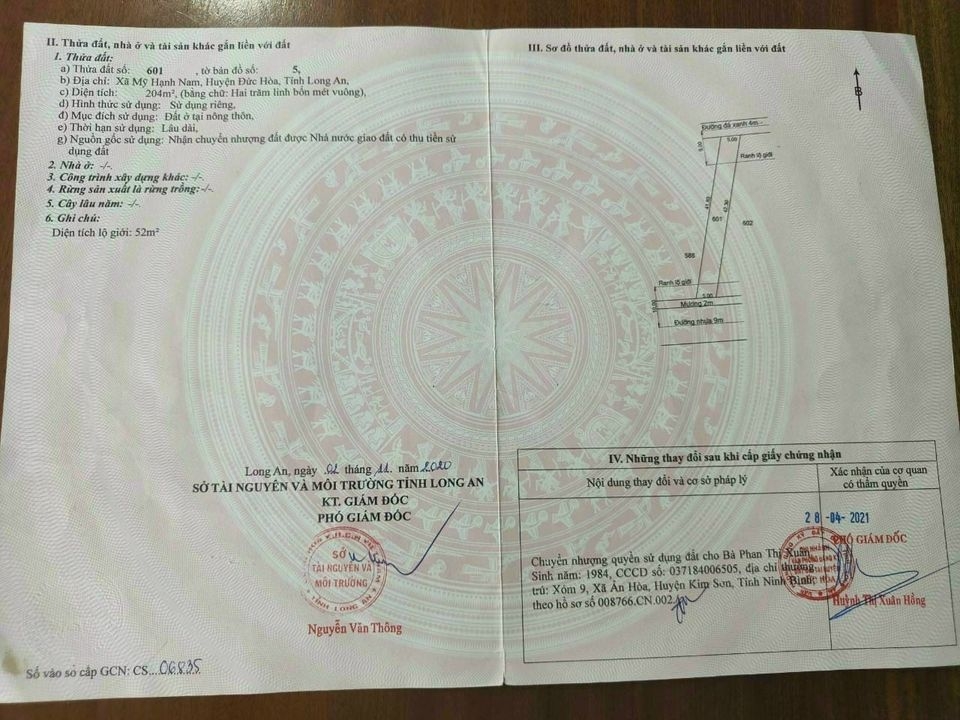 II. Thửa đất, nhà ở và tài sản khác gắn liền với đất
1. Thửa đất:
a) Thửa đất số: 601, tờ bản đồ số: 5,
b) Địa chỉ: Xã Mỹ Hạnh Nam, Huyện Đức Hòa, Tỉnh Long An,
c) Diện tích: 204m², (bằng chữ: Hai trăm linh bốn mét vuông),
d) Hình thức sử dụng: Sử dụng riêng,
đ) Mục đích sử dụng: Đất ở tại nông thôn,
e) Thời hạn sử dụng: Lâu dài,
g) Nguồn gốc sử dụng: Nhận chuyển nhượng đất được Nhà nước giao đất có thu tiền sử
dụng đất
2. Nhà ở: -/-.
3. Công trình xây dựng khác: -/-.
4. Rừng sản xuất là rừng trồng: -/-.
5. Cây lâu năm: -/-.
6. Ghi chú:
Diện tích lộ giới: 52m²
Long An, ngày 02 tháng 11 năm 2020
SỞ TÀI NGUYÊN VÀ MÔI TRƯỜNG TỈNH LONG AN
KT. GIÁM ĐỐC
PHÓ GIÁM ĐỐC
SỞ
TÀI NGUYÊN VÀ
MÔI TRƯỜNG
TỈNH LONG AN
Nguyễn Văn Thông
Số vào sổ cấp GCN: CS...06835
III. Sơ đồ thửa đất, nhà ở và tài sản khác gắn liền với đất
B
Đường đá xanh 4m
5.00
5.00
Ranh lộ giới
41.80
42.30
601
602
586
Ranh lộ giới
10.00
5.00
Mương 2m
Đường nhựa 9m
IV. Những thay đổi sau khi cấp giấy chứng nhận
Nội dung thay đổi và cơ sở pháp lý
Xác nhận của cơ quan
có thẩm quyền
28 -04- 2021
PHÓ GIÁM ĐỐC
Chuyển nhượng quyền sử dụng đất cho Bà Phan Thị Xuân,
Sinh năm: 1984, CCCD số: 037184006505, địa chỉ thường
trú: Xóm 9, Xã Ân Hòa, Huyện Kim Sơn, Tỉnh Ninh Bình;
theo hồ sơ số 008766.CN.002
Huỳnh Thị Xuân Hồng